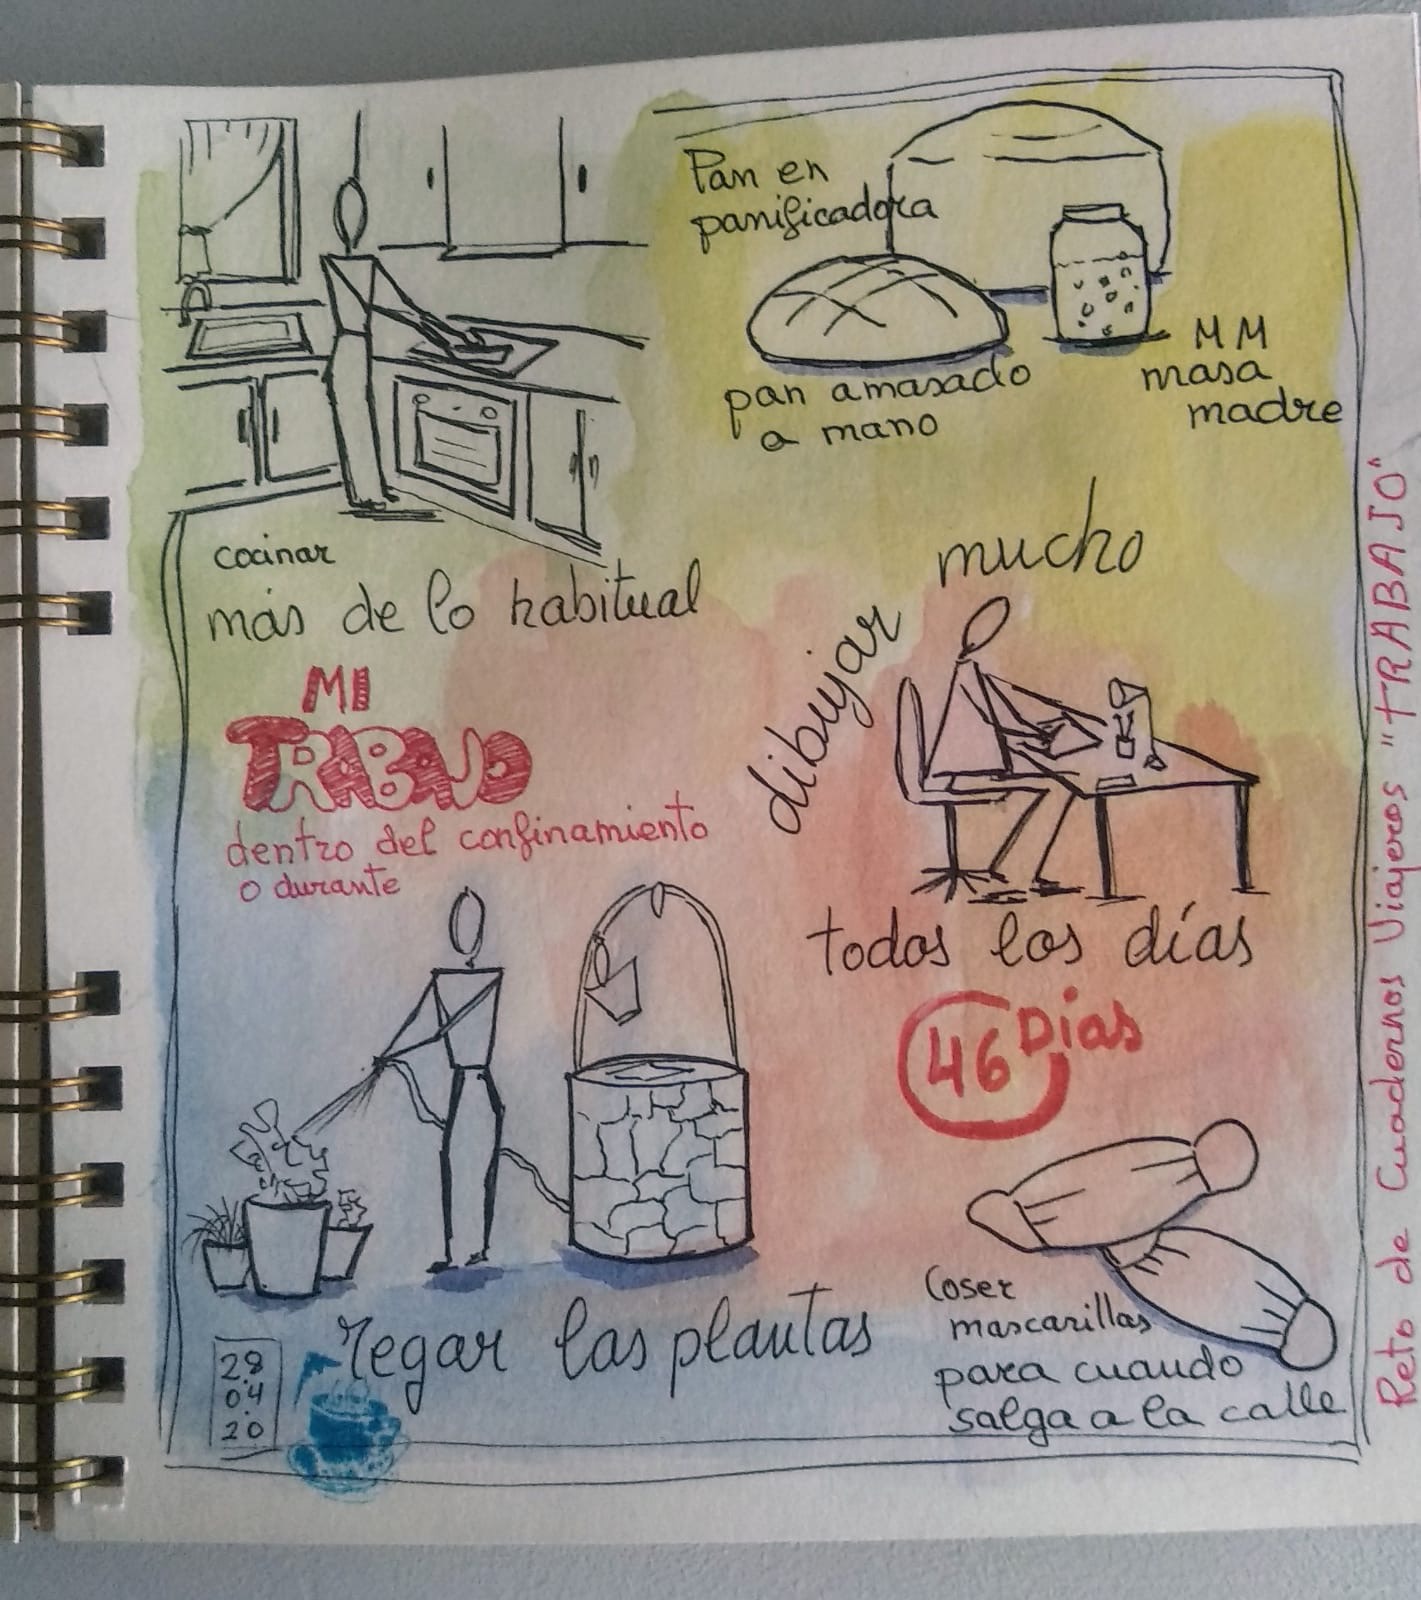 Pan en
panificadora
pan amasado
a mano
MM
masa
madre
cocinar
más de lo habitual
mucho
dibujar
todos los días
46 Días
MI
TRABAJO
dentro del confinamiento
o durante
regar las plantas
Coser
mascarillas
para cuando
salga a la calle
28
04
20
Reto de Cuadernos Viajeros "TRABAJO"